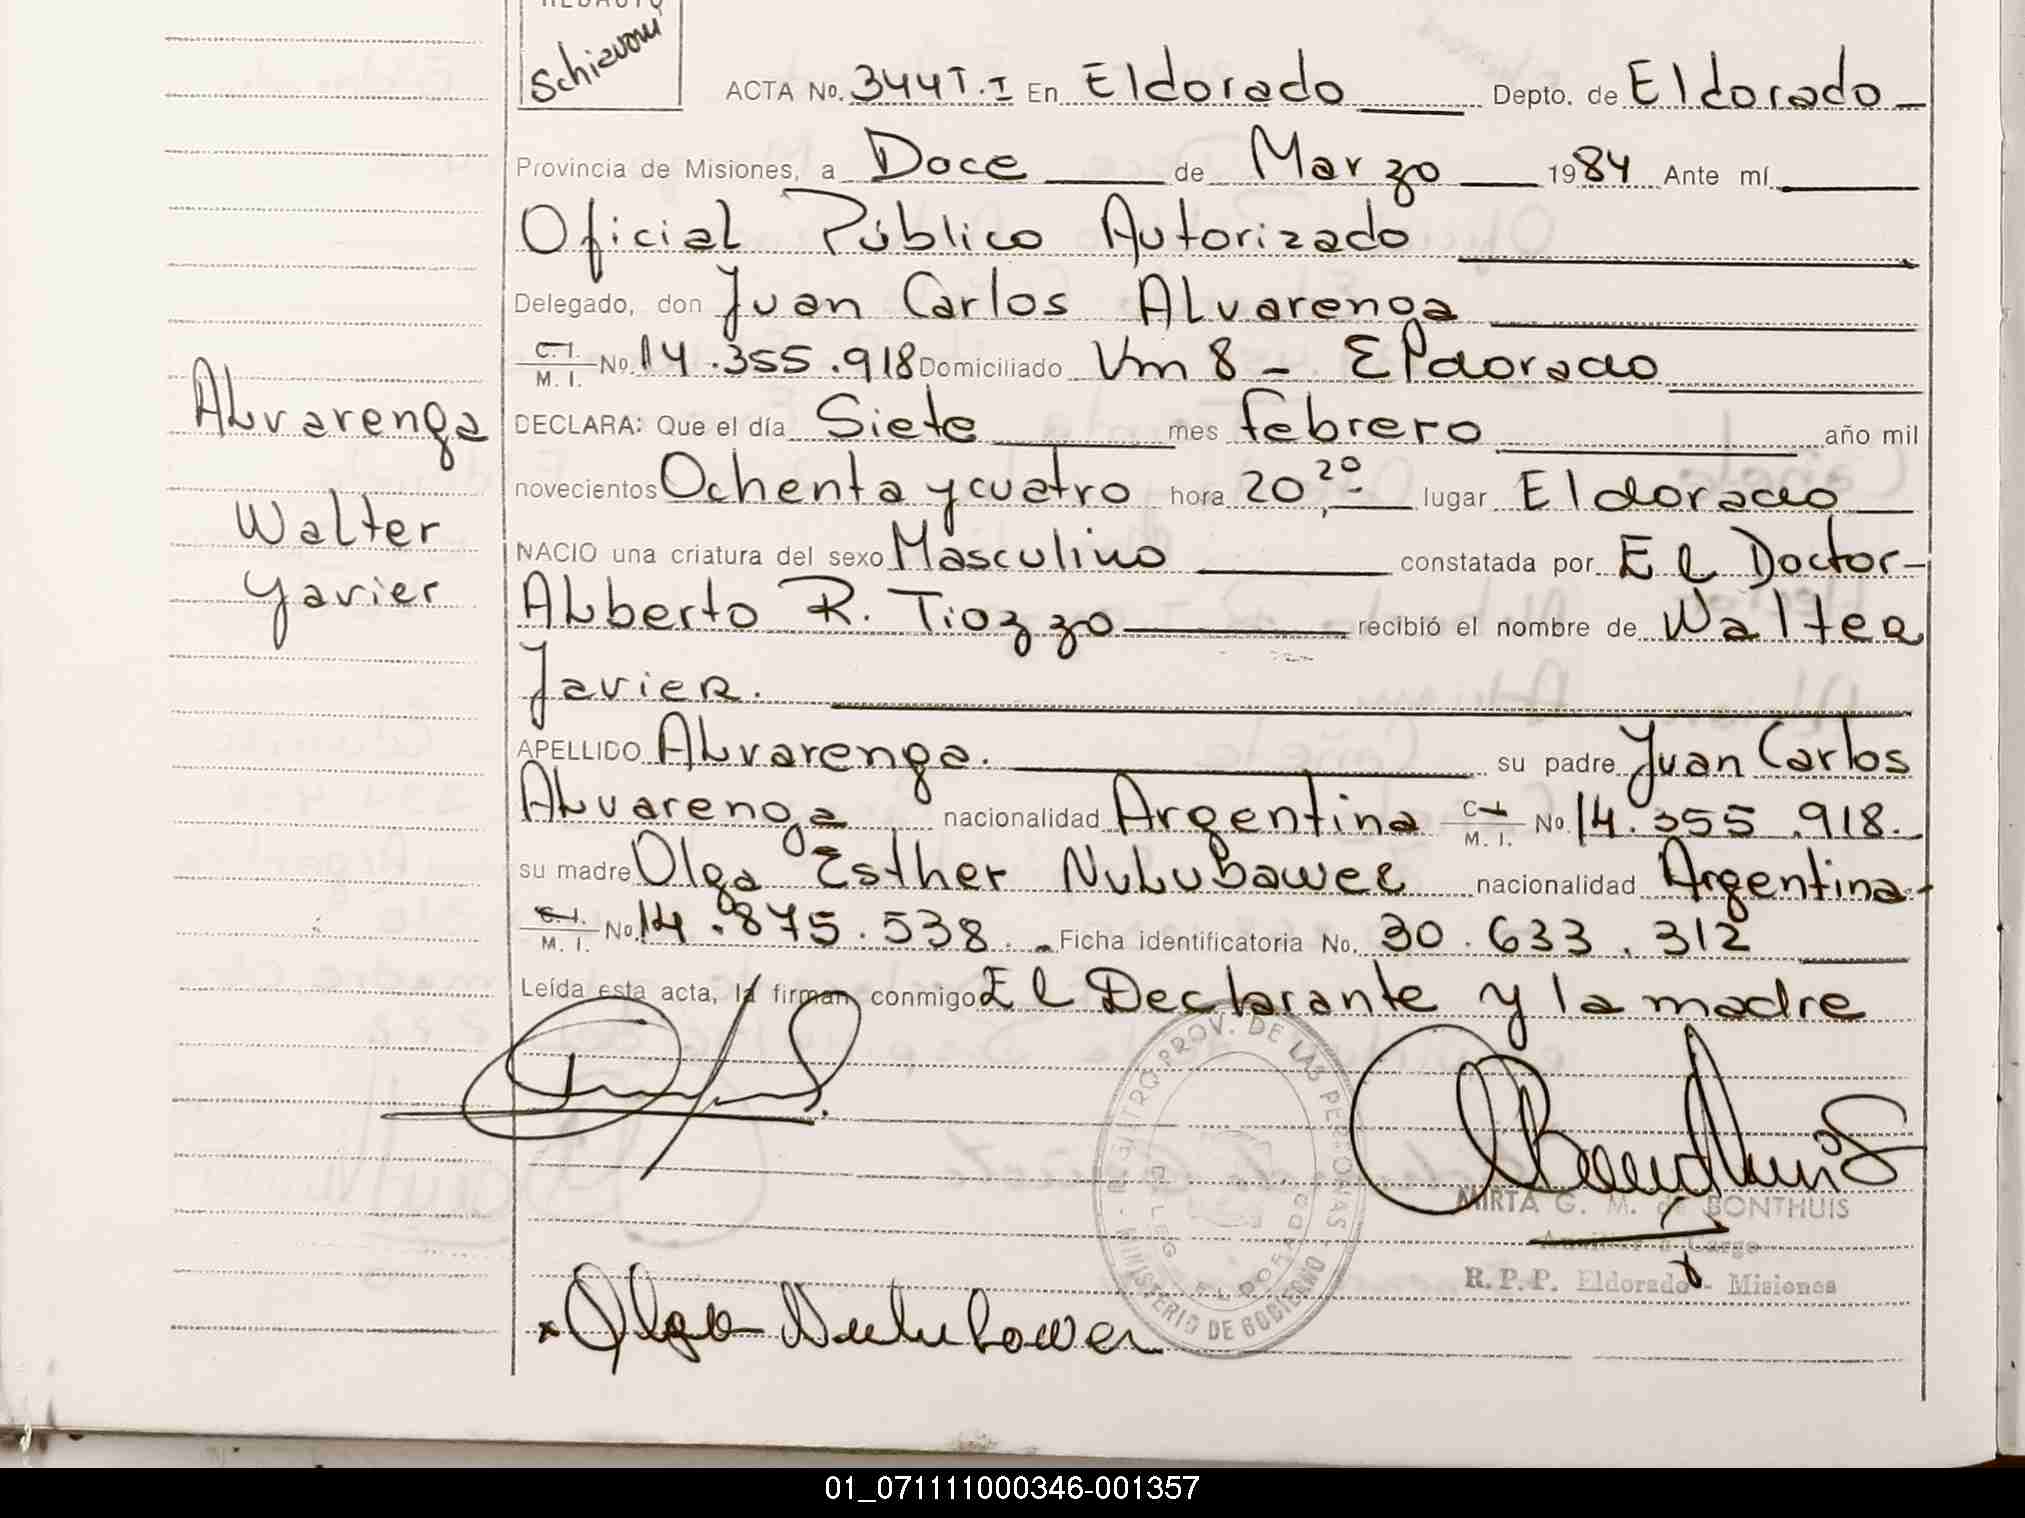 REDACTO
Schiavoni
ACTA No. 344 T.I En Eldorado Depto. de Eldorado
Provincia de Misiones, a Doce de Marzo 1984 Ante mí
Oficial Público Autorizado
Delegado, don Juan Carlos Alvarenga
C.I. M.I. No. 14.355.918 Domiciliado Km 8 - Eldorado
DECLARA: Que el día Siete mes febrero año mil
novecientos Ochenta y cuatro hora 20,20 lugar Eldorado
NACIO una criatura del sexo Masculino constatada por El Doctor
Alberto R. Tiozzo recibió el nombre de Walter
Javier.
APELLIDO Alvarenga. su padre Juan Carlos
Alvarenga nacionalidad Argentina C.I. M.I. No. 14.355.918.
su madre Olga Esther Nulubawer nacionalidad Argentina
C.I. M.I. No. 14.875.538. Ficha identificatoria No. 30.633.312
Leída esta acta, la firman conmigo El Declarante y la madre
Alvarenga
Walter
Javier
REGISTRO PROV. DE LAS PERSONAS - MINISTERIO DE GOBIERNO
DELEG. ELDORADO
MIRTA G. M. de BONTHUIS
Auxiliar a Cargo
R.P.P. Eldorado - Misiones
x Olga Nulubower
01_071111000346-001357